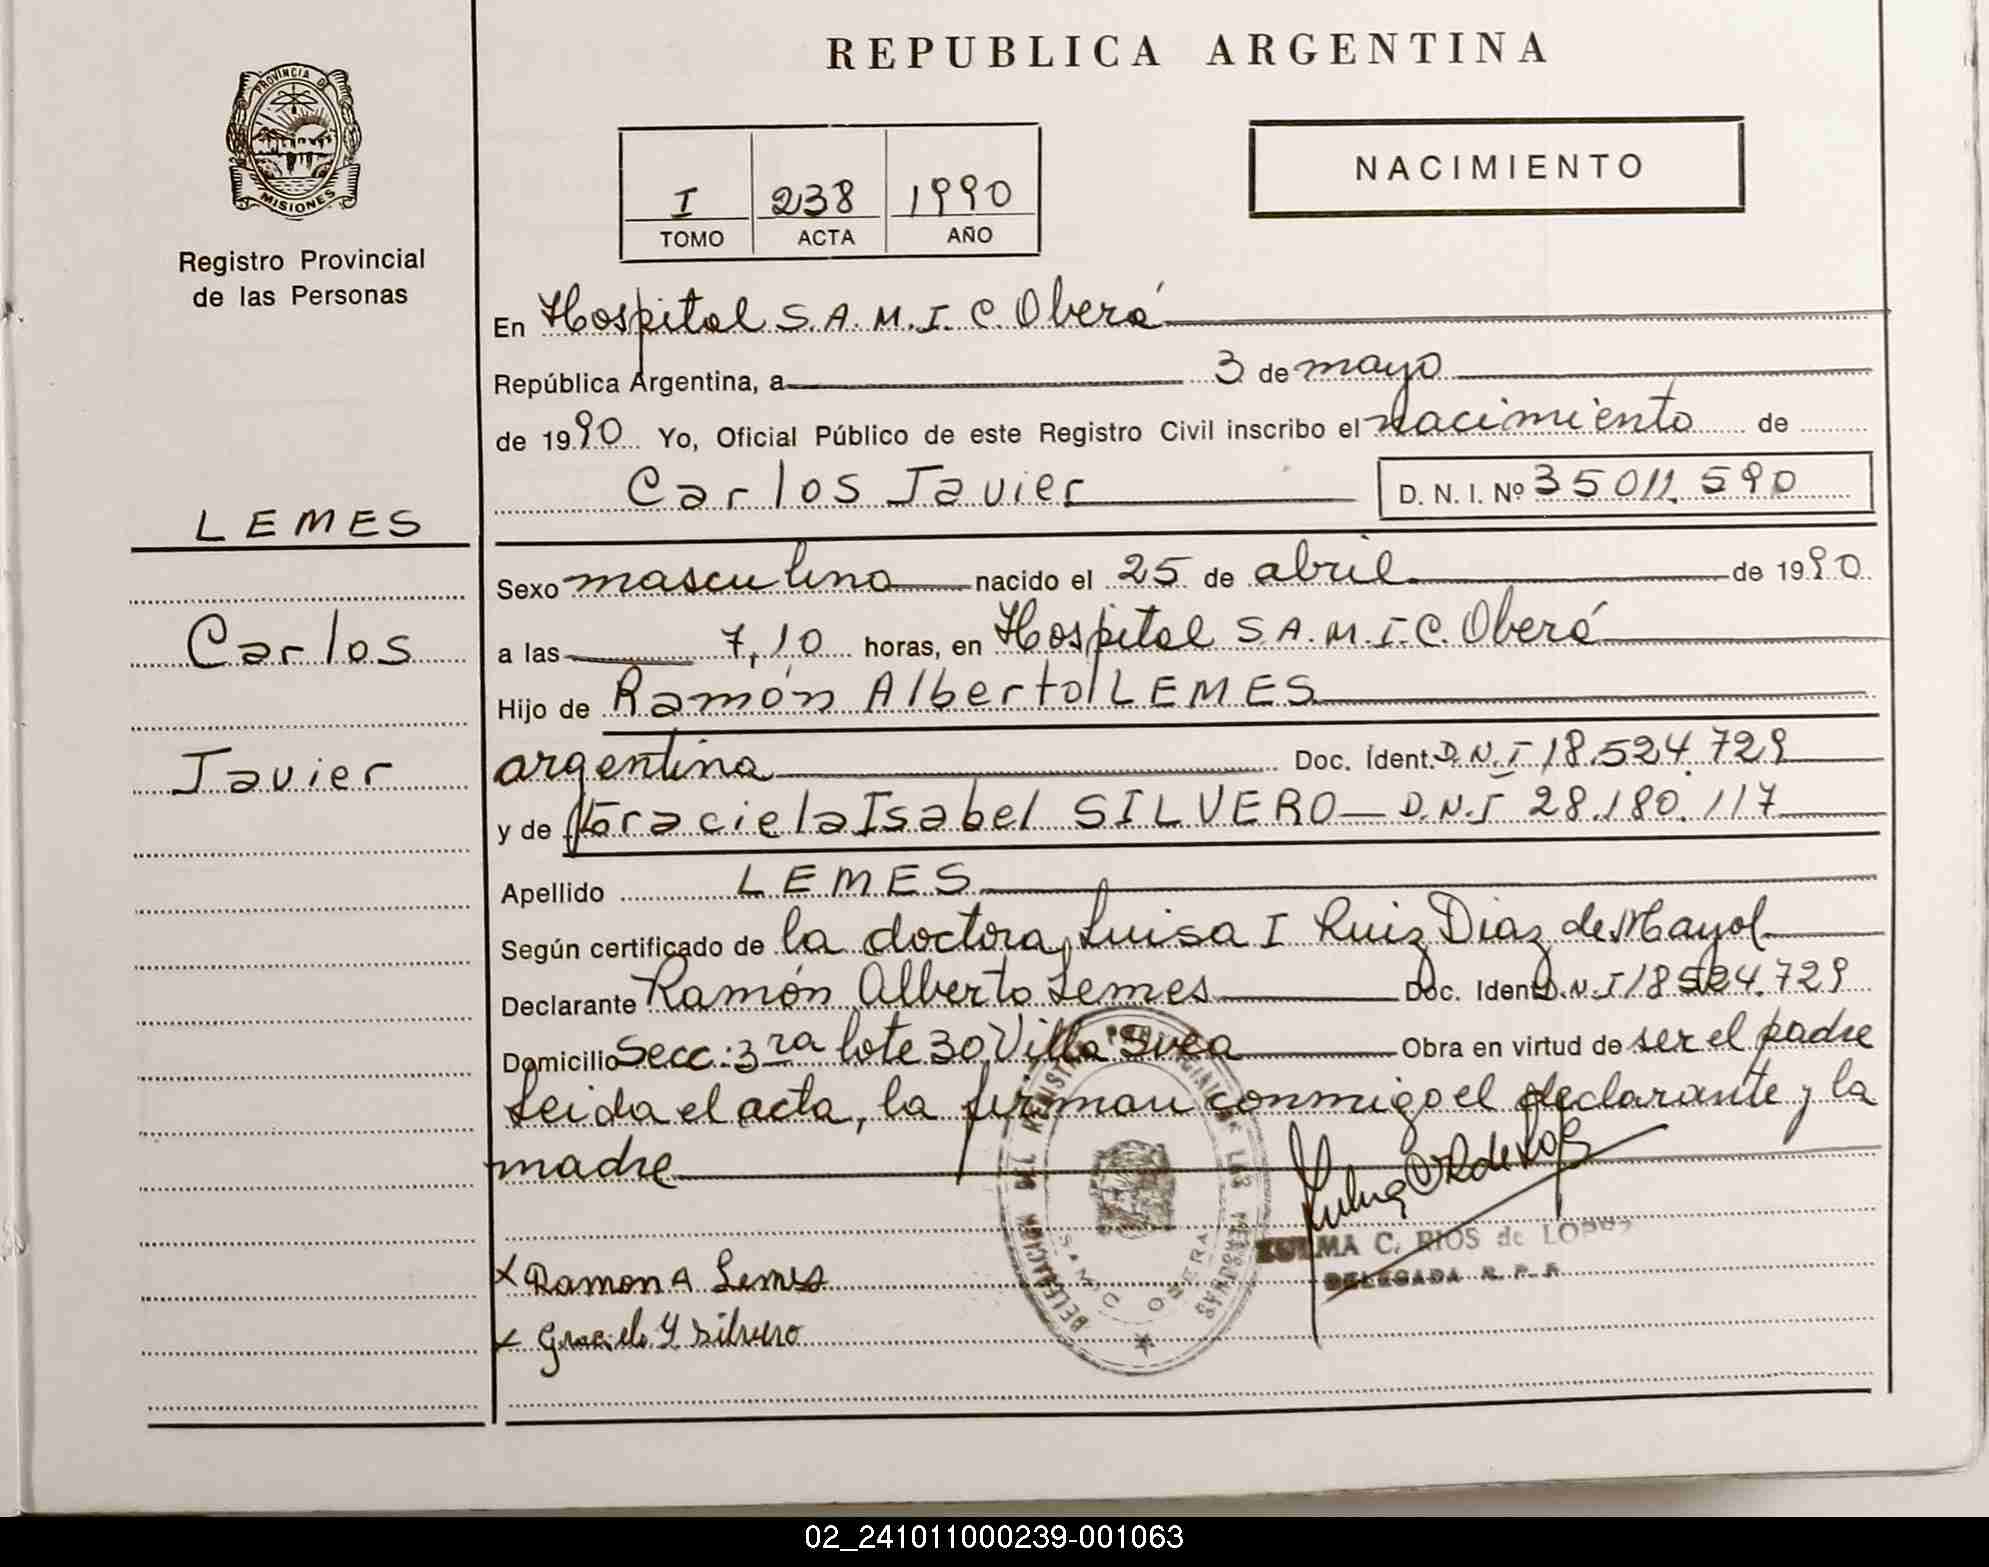 REPUBLICA ARGENTINA
PROVINCIA DE
MISIONES
Registro Provincial
de las Personas
I 238 1990
TOMO ACTA AÑO
NACIMIENTO
En Hospital S.A.M.I.C. Oberá
República Argentina, a 3 de mayo
de 1990 Yo, Oficial Público de este Registro Civil inscribo el nacimiento de
Carlos Javier D. N. I. Nº 35011.590
LEMES
Carlos
Javier
Sexo masculino nacido el 25 de abril de 1990
a las 7,10 horas, en Hospital S.A.M.I.C. Oberá
Hijo de Ramón Alberto LEMES
argentina Doc. Ident. D.N.I 18.524.729
y de Graciela Isabel SILVERO D.N.I 28.180.117
Apellido LEMES
Según certificado de la doctora Luisa I Ruiz Diaz de Mayol
Declarante Ramón Alberto Lemes Doc. Ident. D.N.I 18524.729
Domicilio Secc: 3ra lote 30 Villa Svea Obra en virtud de ser el padre
Leida el acta, la firman conmigo el declarante y la
madre
ZULMA C. RIOS de LOPEZ
DELEGADA R. P. P.
x Ramon A Lemes
x Graciela Y Silvero
DELEGACION DEL REGISTRO PROVINCIAL DE LAS PERSONAS
02_241011000239-001063